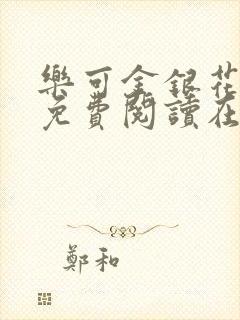 樂可金銀花
免費閱讀在
鄭和